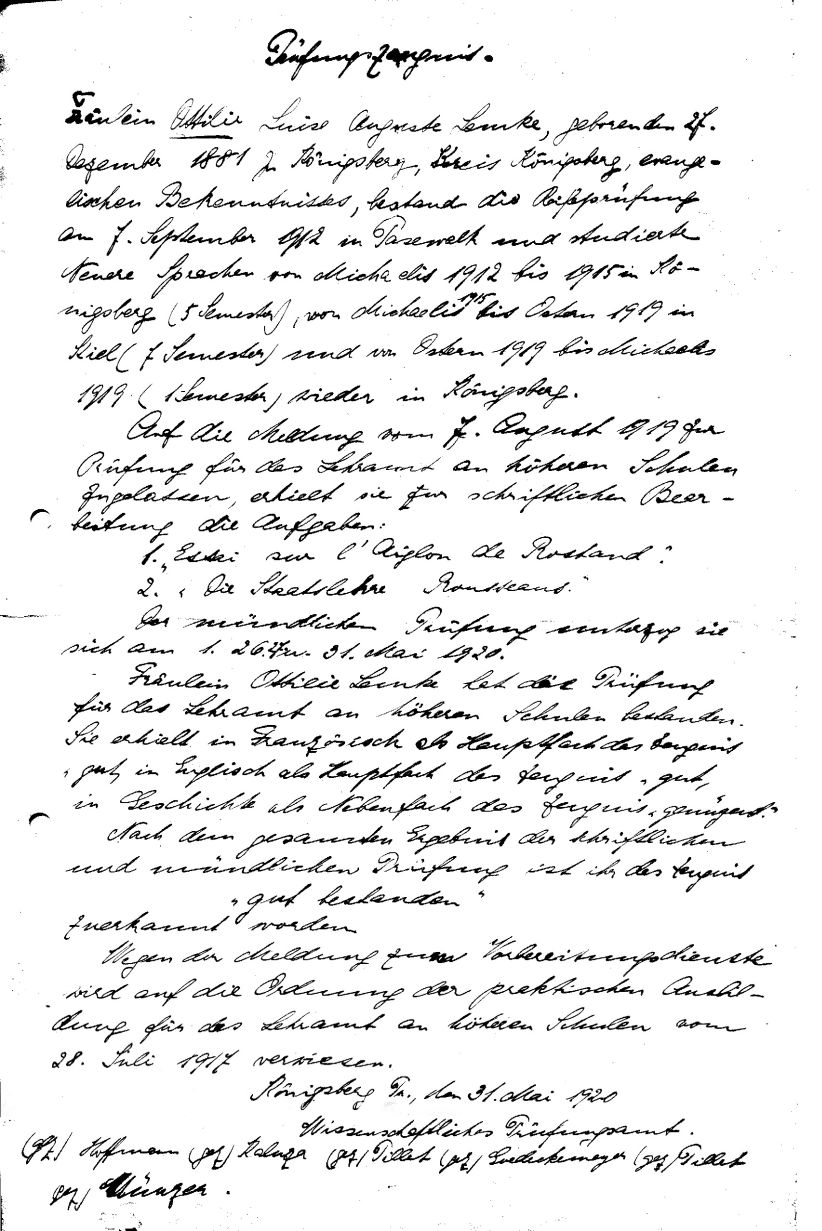 Prüfungszeugnis.
Fräulein Ottilie Luise Auguste Lemke, geboren den 27.
Dezember 1881 zu Königsberg, Kreis Königsberg, evange-
lischen Bekenntnisses, bestand die Reifeprüfung
am 7. September 1912 in Pasewalk und studierte
Neuere Sprachen von Michaelis 1912 bis 1915 in Kö-
nigsberg (5 Semester), von Michaelis 1915 bis Ostern 1919 in
Kiel (7 Semester) und von Ostern 1919 bis Michaelis
1919 (1 Semester) wieder in Königsberg.
Auf die Meldung vom 7. August 1919 zur
Prüfung für das Lehramt an höheren Schulen
zugelassen, erhielt sie zur schriftlichen Bear-
beitung die Aufgaben:
1. „Essai sur l'Aiglon de Rostand".
2. „Die Staatslehre Rousseaus."
Der mündlichen Prüfung unterzog sie
sich am 1. 26. u. 31. Mai 1920.
Fräulein Ottilie Lemke hat die Prüfung
für das Lehramt an höheren Schulen bestanden.
Sie erhielt in Französisch als Hauptfach das Zeugnis
„gut, in Englisch als Hauptfach das Zeugnis „gut,
in Geschichte als Nebenfach das Zeugnis „genügend."
Nach dem gesamten Ergebnis der schriftlichen
und mündlichen Prüfung ist ihr das Zeugnis
„gut bestanden"
zuerkannt worden
Wegen der Meldung zum Vorbereitungsdienste
wird auf die Ordnung der praktischen Ausbil-
dung für das Lehramt an höheren Schulen vom
28. Juli 1917 verwiesen.
Königsberg Pr., den 31. Mai 1920
Wissenschaftliches Prüfungsamt.
(gez) Hoffmann (gez) Kaluza (gez) Pillet (gez) (gez) Pillet
gez)